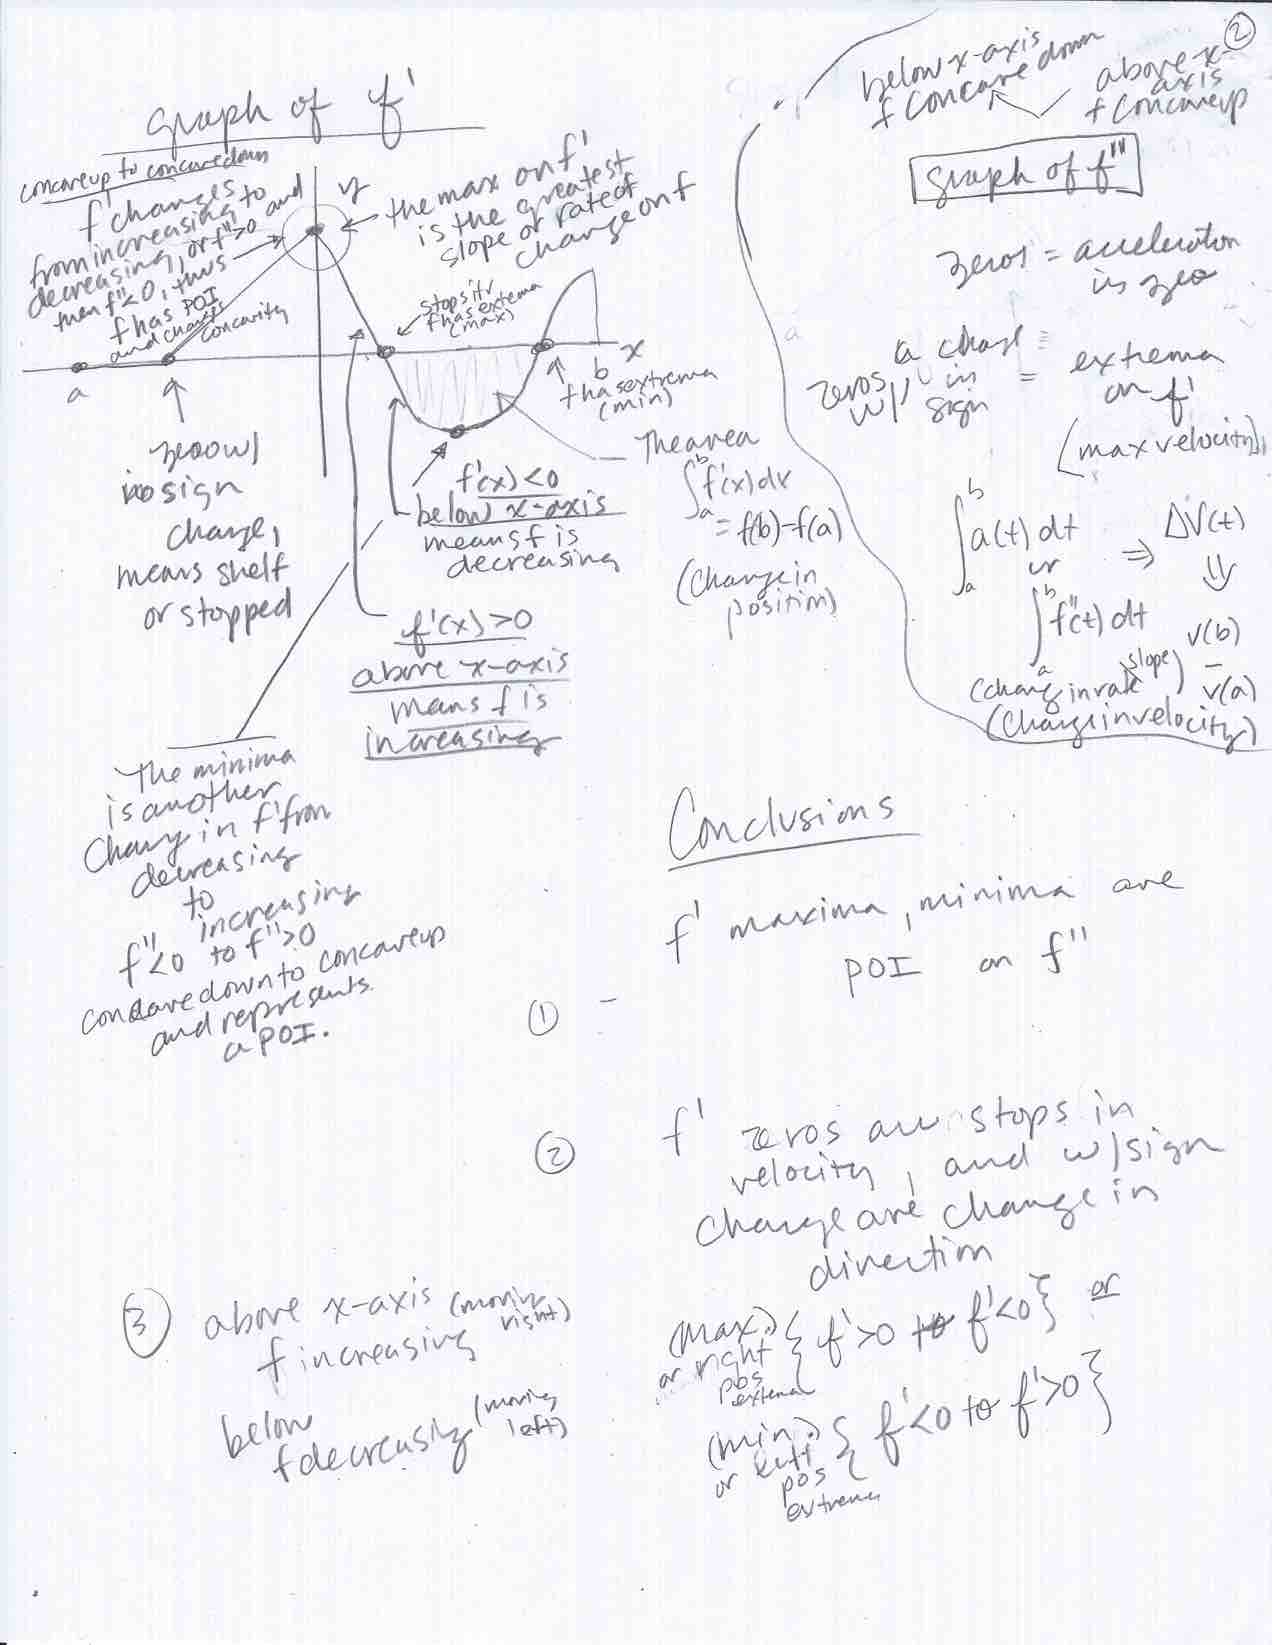 2
graph of f'
concave up to concave down
f' changes
from increasing to
decreasing, or f">0 and
then f"<0, thus
f has POI
and changes
concavity
y
the max on f'
is the greatest
slope or rate of
change on f
stops it
f has extrema
(max)
x
a
b
f has extrema
(min)
zero w/
no sign
change,
means shelf
or stopped
f'(x) < 0
below x-axis
means f is
decreasing
The area
∫ₐᵇ f'(x) dx
= f(b) - f(a)
(change in
position)
f'(x) > 0
above x-axis
means f is
increasing
The minima
is another
change in f' from
decreasing
to
increasing
f"<0 to f">0
concave down to concave up
and represents
a POI.
below x-axis
f concave down
above x-
axis
f concave up
graph of f"
zeros = acceleration
is zero
zeros w/ a change in sign = extrema
on f'
(max velocity)
∫ₐᵇ a(t) dt ⇒ ΔV(t)
or
⇓
∫ₐᵇ f"(t) dt
v(b)
-
v(a)
(change in rate slope)
(change in velocity)
Conclusions
① -
f' maxima, minima are
POI on f"
②
f' zeros are stops in
velocity, and w/ sign
change are change in
direction
(max.) { f'>0 to f'<0 } or
or right
pos
extrema
(min.) { f'<0 to f'>0 }
or left
pos
extrema
③ above x-axis (moving
right)
f increasing
below
f decreasing (moving
left)